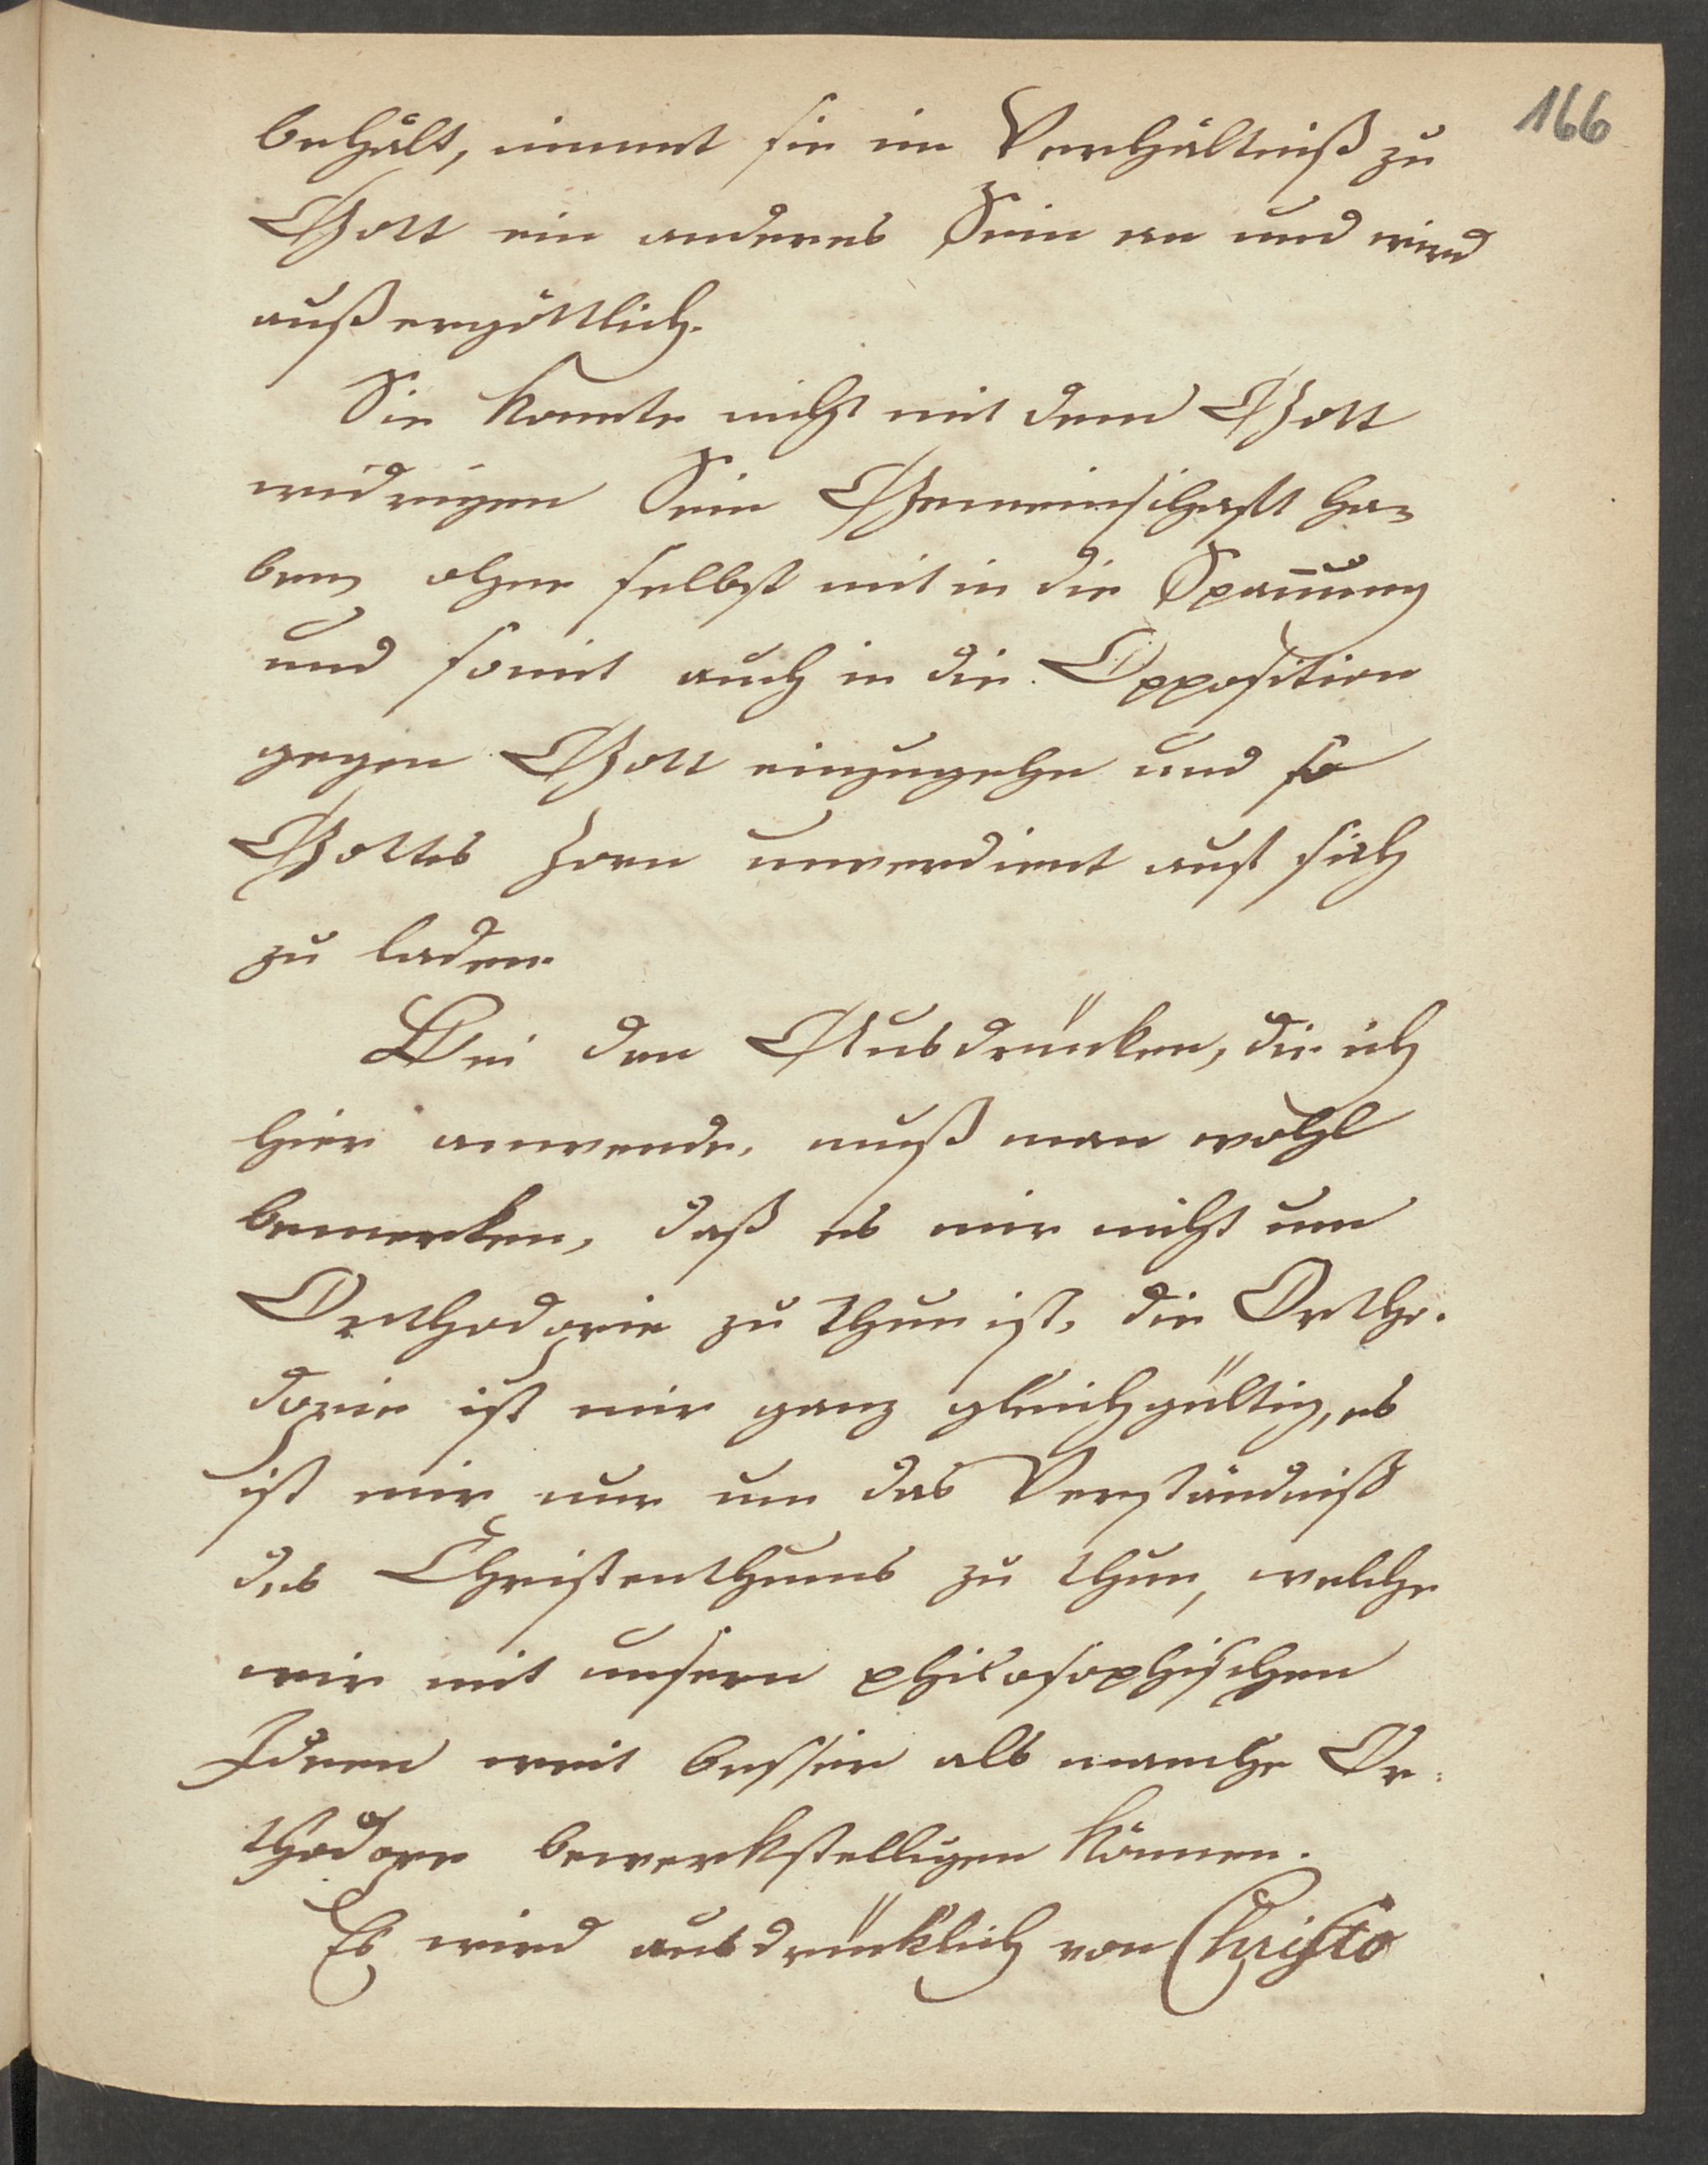 166
behält, nimmt sie im Verhältniß zu
Gott ein anderes Sein an und wird
außergöttlich.
Sie konnte nicht mit dem Gott
widrigen Sein Gemeinschaft ha-
ben, ohne selbst mit in die Spannung
und somit auch in die Opposition
gegen Gott einzugehn und so
Gottes Zorn unverdient auf sich
zu laden.
Bei den Ausdrücken, die ich
hier anwende, muß man wohl
bemerken, daß es mir nicht um
Orthodoxie zu thun ist, die Ortho-
doxie ist mir ganz gleichgültig, es
ist mir nur um das Verständniß
des Christenthums zu thun, welche
wir mit unsern philosophischen
Ideen weit besser als manche Or-
thodoxe bewerkstelligen können.
Es wird ausdrücklich von Christo